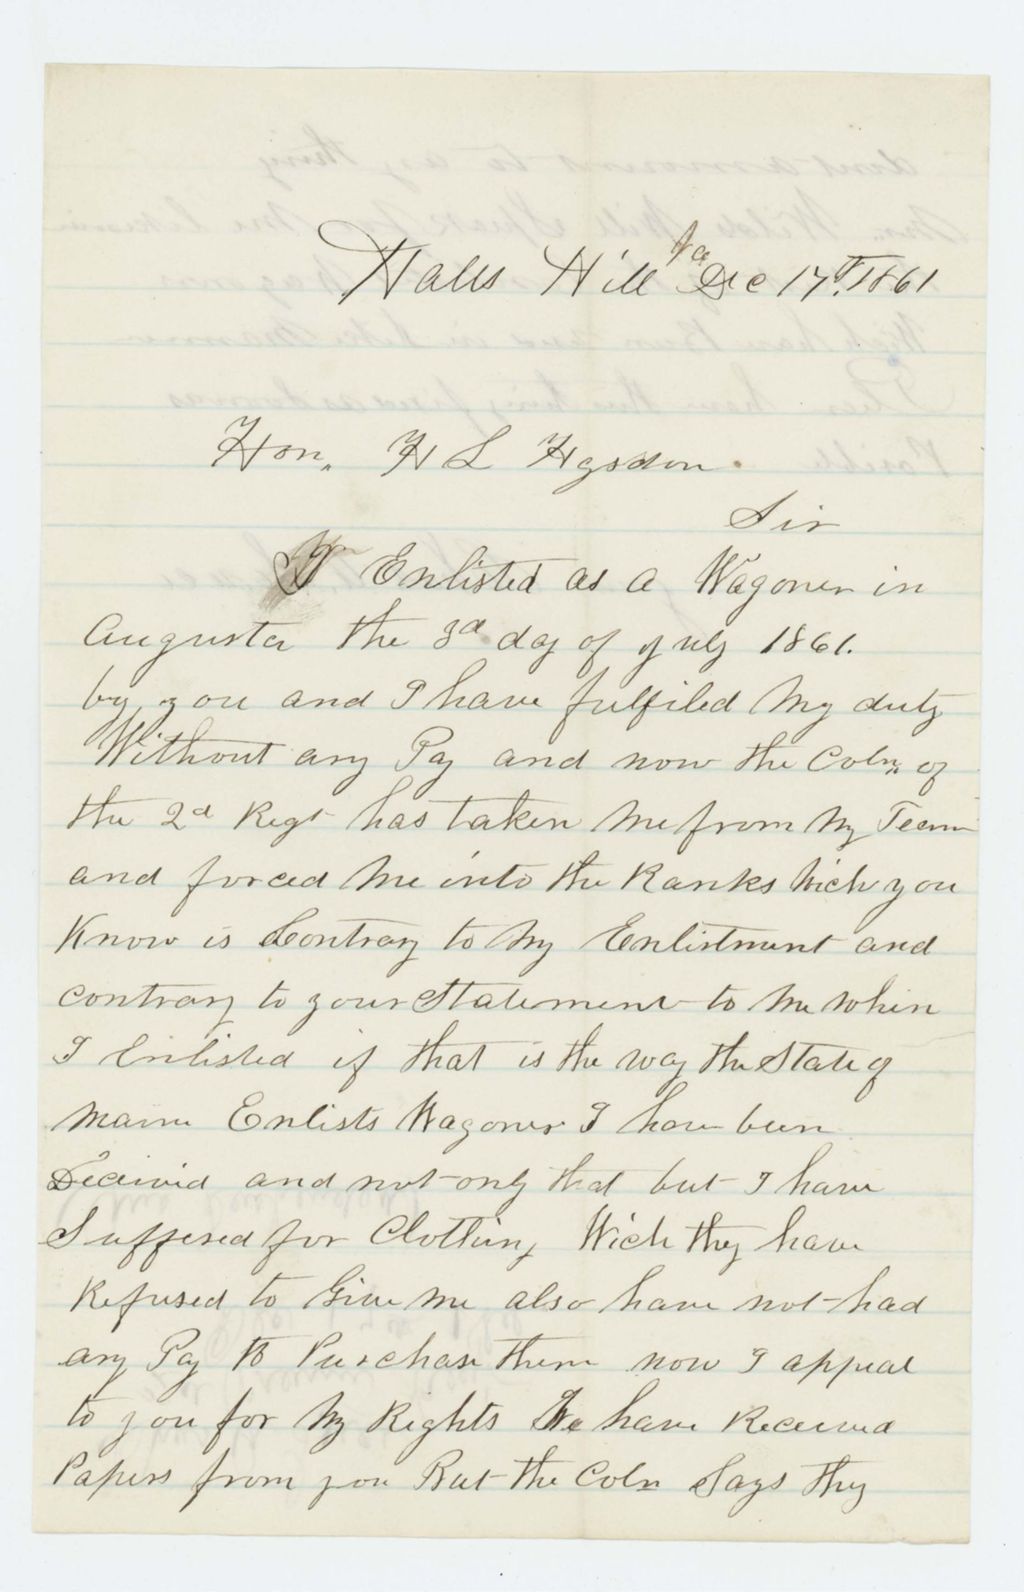 Halls Hill Va Dec 17th 1861
Hon. H L Hysdon.
Sir
I Enlisted as a Wagoner in
Augusta the 3d day of July 1861.
by you and I have fulfiled my duty
Without any Pay and now the Coln of
the 2d Regt has taken me from my Team
and forced me into the Ranks Wich you
Know is Contrary to my Enlistment and
contrary to your Statement to me when
I Enlisted if that is the way the State of
Maine Enlists Wagoner I have been
Deceived and not only that but I have
Suffered for Clothing Wich they have
Refused to Give me also have not had
any Pay to Purchase them now I appeal
to you for my Rights We have Received
Papers from you But the Coln Says they